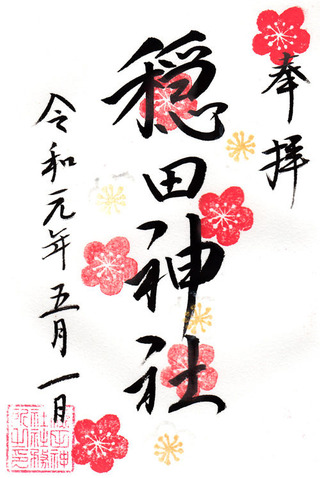 奉拝
穏田神社
令和元年五月一日